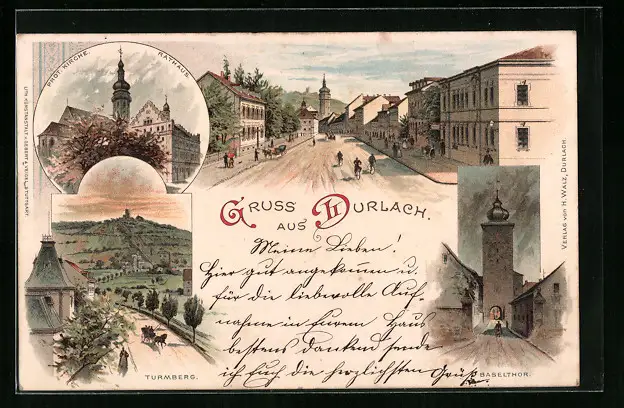 PROT. KIRCHE.
RATHAUS.
GRUSS
AUS
DURLACH.
Meine Lieben!
Hier gut angekommen u.
für die liebevolle Auf-
nahme in Eurem Haus
bestens dankend sende
ich Euch die herzlichsten Grüße
TURMBERG.
BASELTHOR.
VERLAG VON H. WALZ, DURLACH